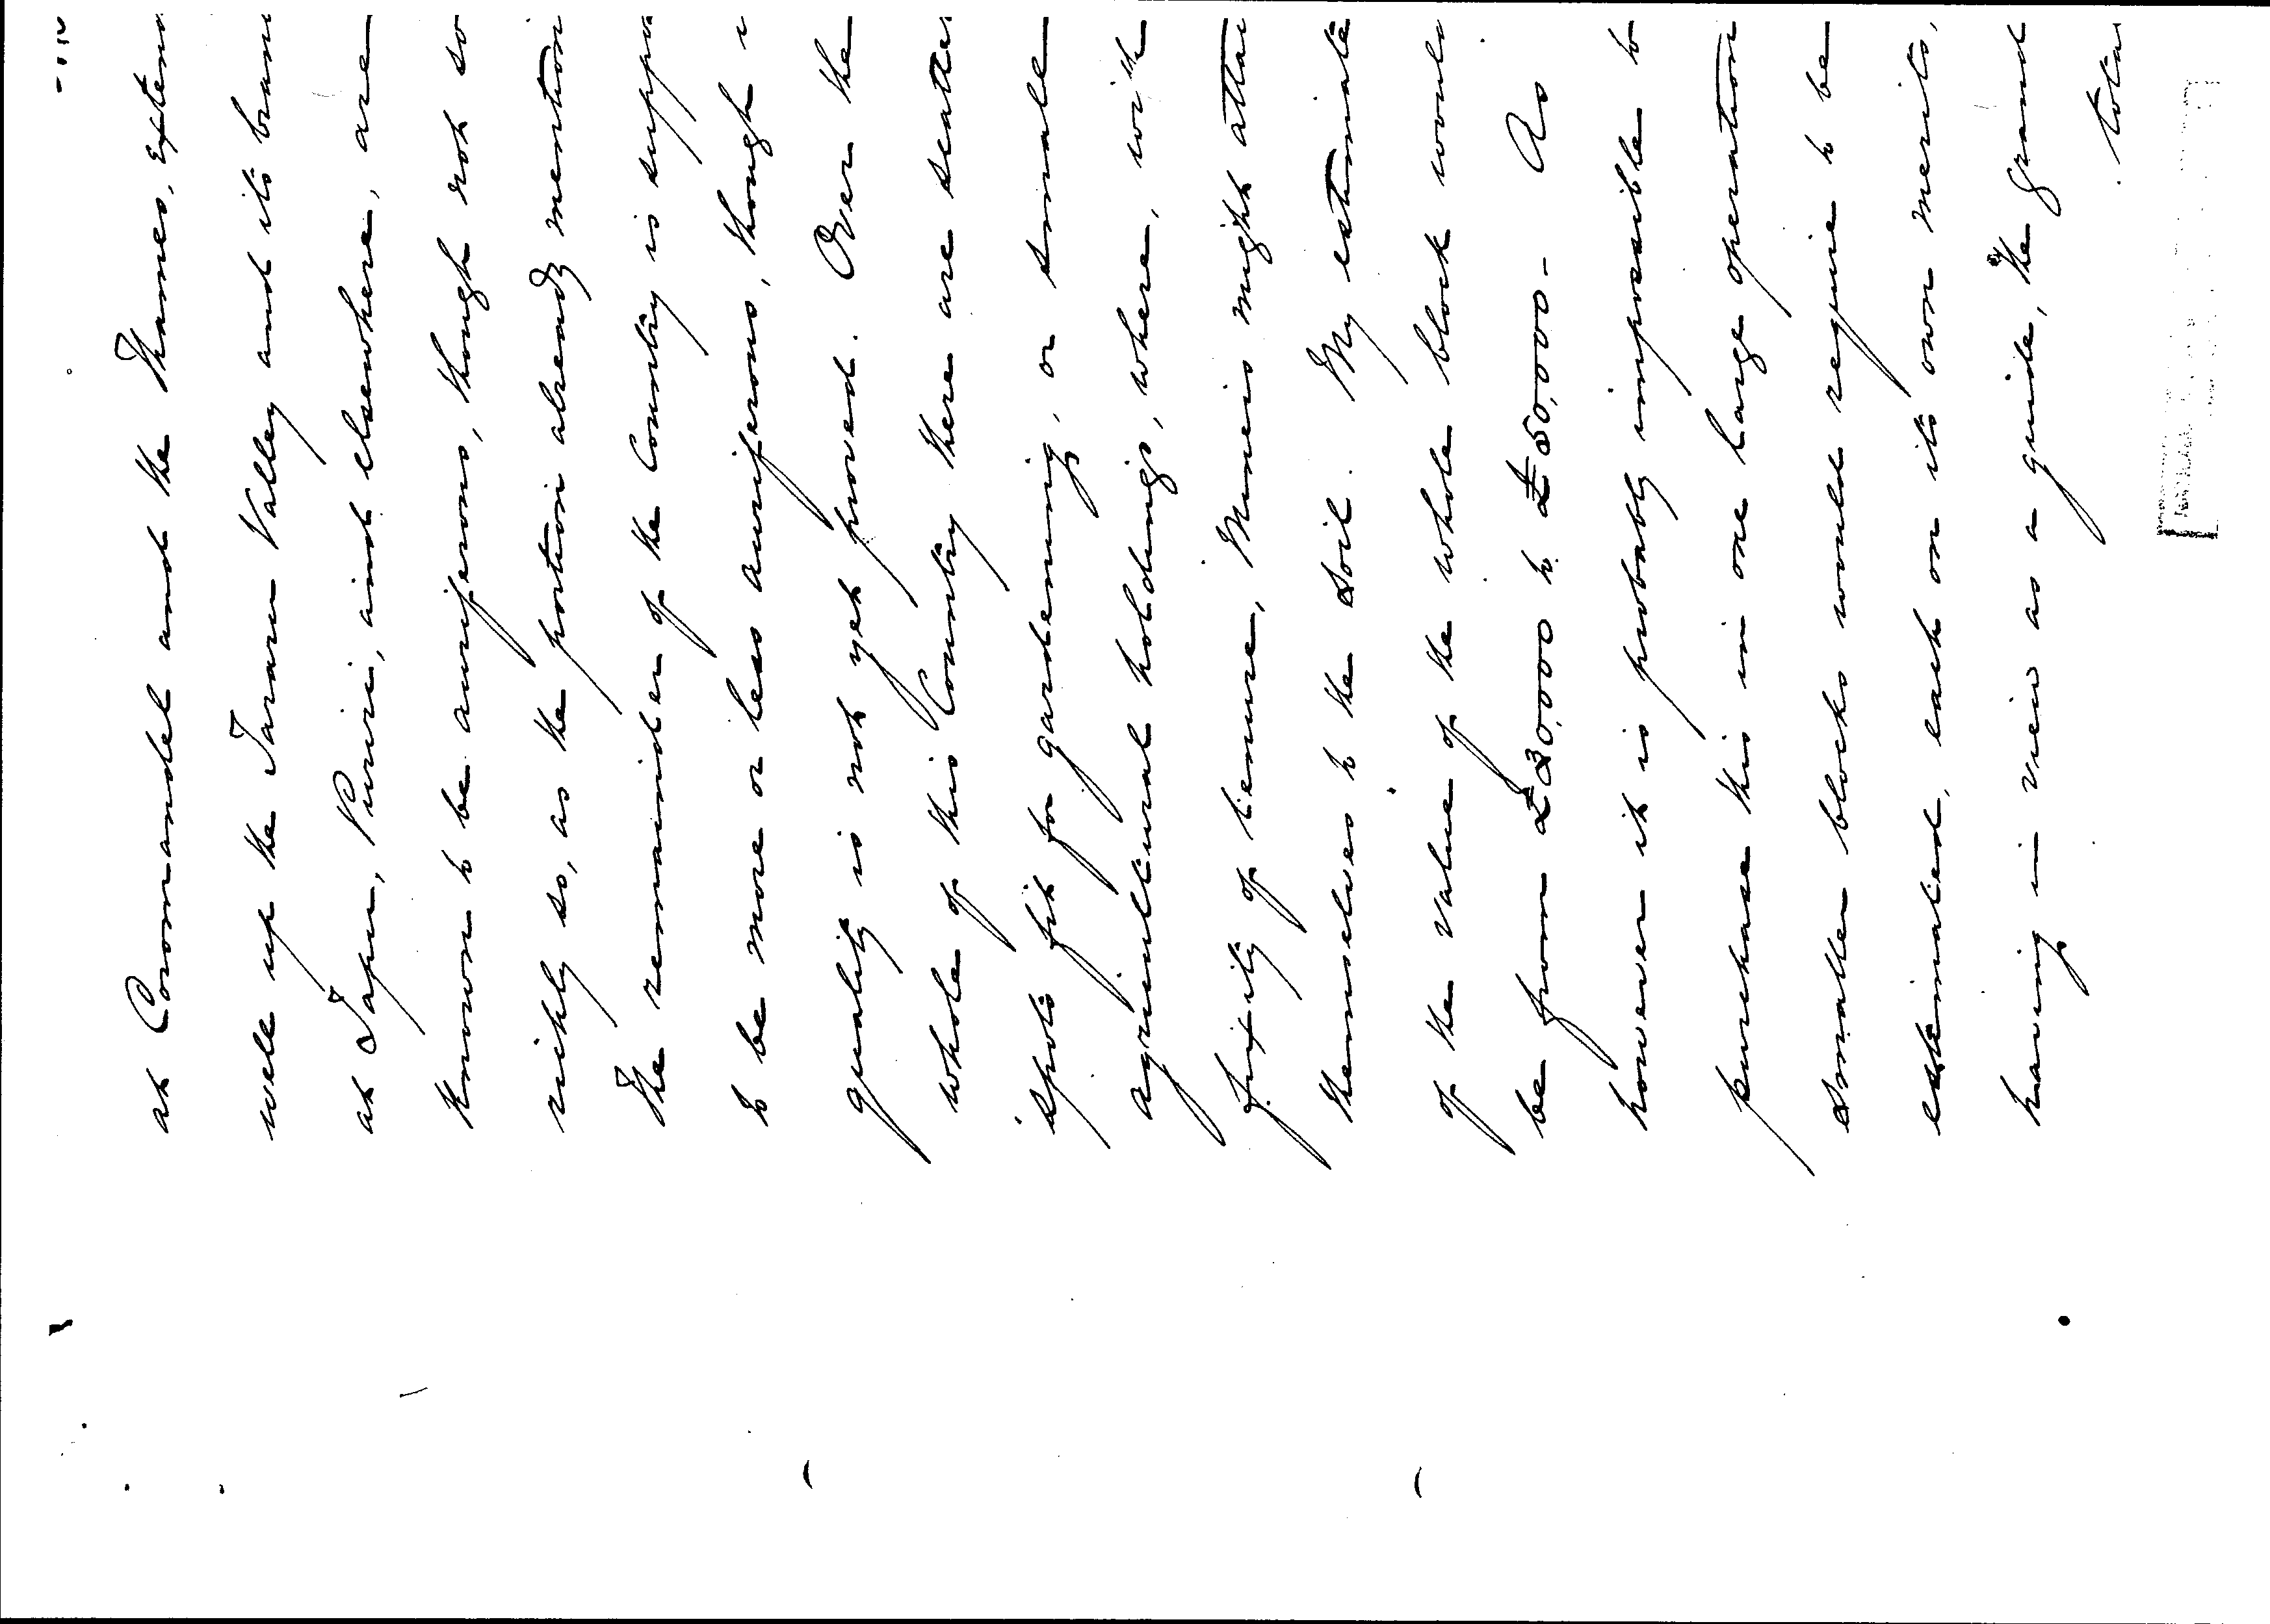 at Coromandel and the Thames, exten
well up the Tararu Valley and its bran
at Tapu, Puriri, and elsewhere, are
known to be auriferous, though not so
richly so, as the portion already mention
The remainder of the Country is suppo
to be more or less auriferous, though i
quality is not yet proved. Over the
whole of this Country there are scatter
spots fit for gardening, or small
agricultural holdings, where, with
fixity of tenure, Miners might attac
themselves to the soil. My estimate
of the value of the whole block woul
be from £30,000 to £50,000 - As
however it is probably impossible to
purchase this in one large operation
smaller blocks would require to be
estimated, each on its own merits,
having in view as a guide, the grand
tota